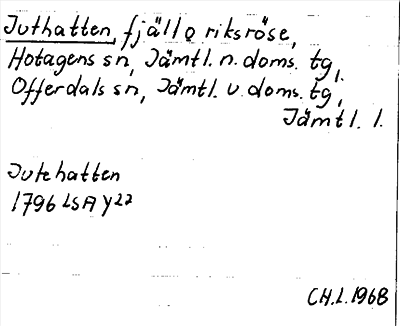 Juthatten, fjäll o riksröse,
Hotagens sn, Jämtl. n. doms. tg,
Offerdals sn, Jämtl. v. doms. tg,
Jämtl. l.
Jutehatten
1796 LSA Y22
C.H.L. 1968